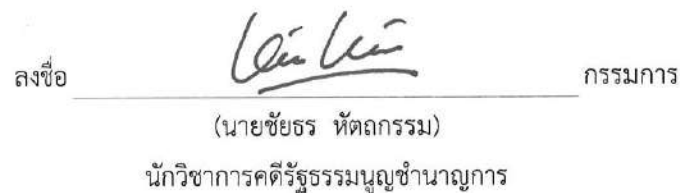 ลงชื่อ กรรมการ
(นายชัยธร หัตถกรรม)
นักวิชาการคดีรัฐธรรมนูญชำนาญการ